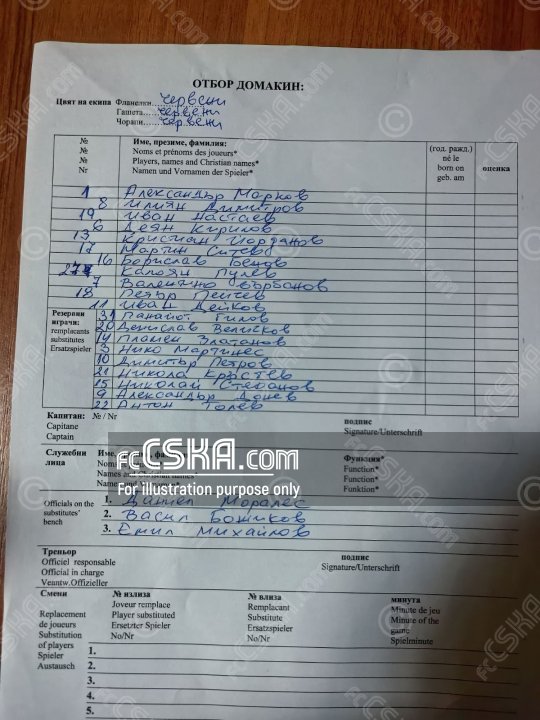 ОТБОР ДОМАКИН:
Цвят на екипа Фланелки червени
Гащета......червени
Чорапи......червени
№ Име, презиме, фамилия: (год. ражд.)
№ Noms et prénoms des joueurs* né le
№ Players, names and Christian names* born on оценка
Nr Namen und Vornamen der Spieler* geb. am
1 Александър Марков
8 Илиян Димитров
19 Иван Настаев
6 Деян Кирилов
13 Кристиан Йорданов
17 Мартин
16 Борислав
27 Калоян Пулев
7 Валентино Върбанов
18 Петър Пенчев
11 Иван Дейков
Резервни играчи:
remplacants
substitutes
Ersatzspieler
31 Панайот Гилов
20 Денислав Величков
14 Пламен Златанов
3 Нико Мартинес
10 Димитър Петров
21 Никола Кръстев
15 Николай Стефанов
9 Александър Донев
22 Антон Толев
Капитан: № / Nr подпис
Capitaine Signature/Unterschrift
Captain
Служебни лица
Име, Функция*
Noms Function*
Names and Christian names Function*
Funktion*
fcCSKA.com
For illustration purpose only
Officials on the substitutes' bench
1. Даниел Моралес
2. Васил Божиков
3. Емил Михайлов
Треньор подпис
Officiel responsable Signature/Unterschrift
Official in charge
Veantw.Offizielier
Смени № излиза № влиза минута
Joveur remplace Remplacant Minute de jeu
Replacement Player substituted Substitute Minute of the
de joueurs Ersetzter Spieler Ersatzspieler game
Substitution No/Nr No/Nr Spielminute
of players
Spieler 1.
Austausch 2.
3.
4.
5.